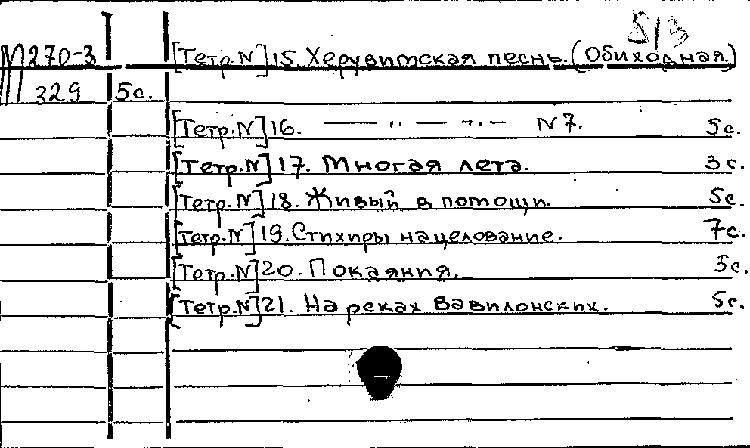 Б/З
М270-3 [Тетр.N]15. Херувимская песнь. (Обиходная)
329 5с.
[Тетр.N]16. — " — " — N7. 5с.
[Тетр.N]17. Многая лета. 3с.
[Тетр.N]18. Живый в помощи. 5с.
[Тетр.N]19. Стихиры на целование. 7с.
[Тетр.N]20. Покаяния. 3с.
[Тетр.N]21. На реках Вавилонских. 5с.